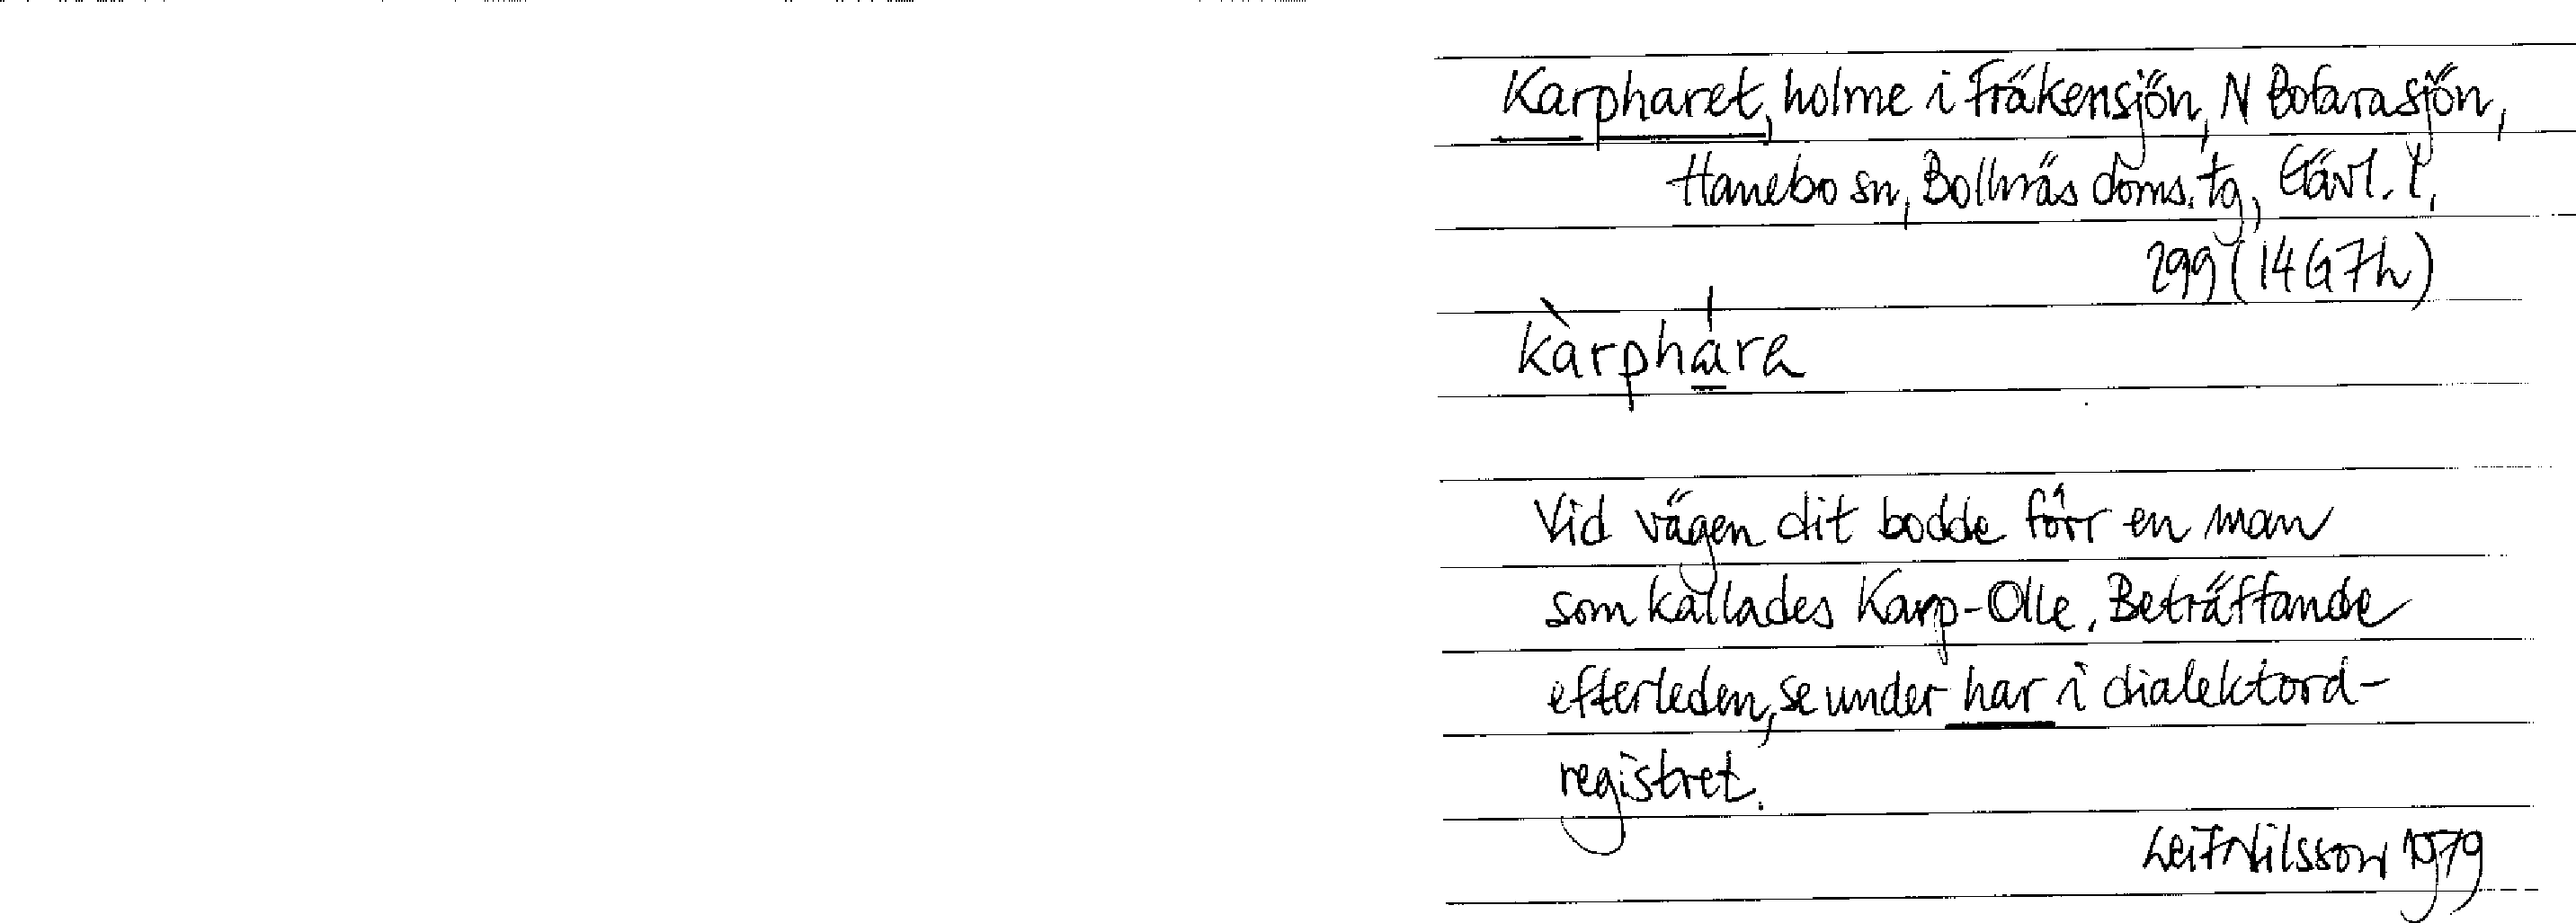 Karpharet, holme i Fräkensjön, N Bofarasjön,
Hanebo sn, Bollnäs doms. tg, Gävl. l,
299 (14G7h)
kàrphára
Vid vägen dit bodde förr en man
som kallades Karp-Olle. Beträffande
efterleden, se under har i dialektord-
registret.
Leif Nilsson 1979